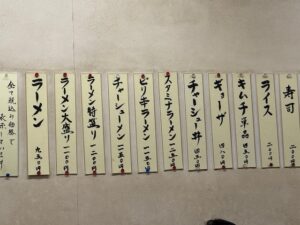 寿司
二〇〇円
ライス
二〇〇円
キムチ単品
四五〇円
ギョーザ
四八〇円
チャーシュー丼
四五〇円
スタミナラーメン
一一五〇円
ピリ辛ラーメン
一一五〇円
チャーシューメン
一二五〇円
ラーメン特盛り
一二〇〇円
ラーメン大盛り
一一〇〇円
ラーメン
九五〇円
全て税込み価格で
表示しています